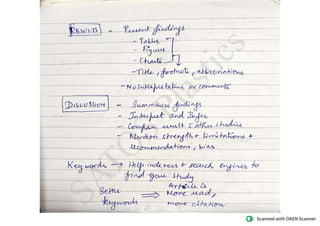 RESULTS - Present findings
- Tables
- Figures
- Charts
- Title, footnote, abbreviations
- No interpretations or comments
DISCUSSION - Summarise findings
- Interpret and Infer
- Compare result c̄ other studies
- Mention strength + limitations +
recommendations, bias
Keywords → Help indexers + search engines to
find your study
Better keywords ⇒ Article is more read,
more citation
Scanned with OKEN Scanner